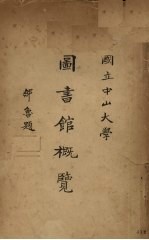 國立中山大學
圖書館概覽
鄒魯題